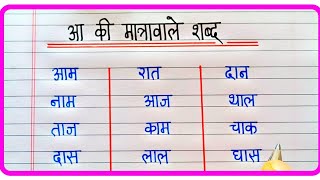 आ की मात्रावाले शब्द
आम रात दान
नाम आज थाल
ताज काम चाक
दास लाल घास